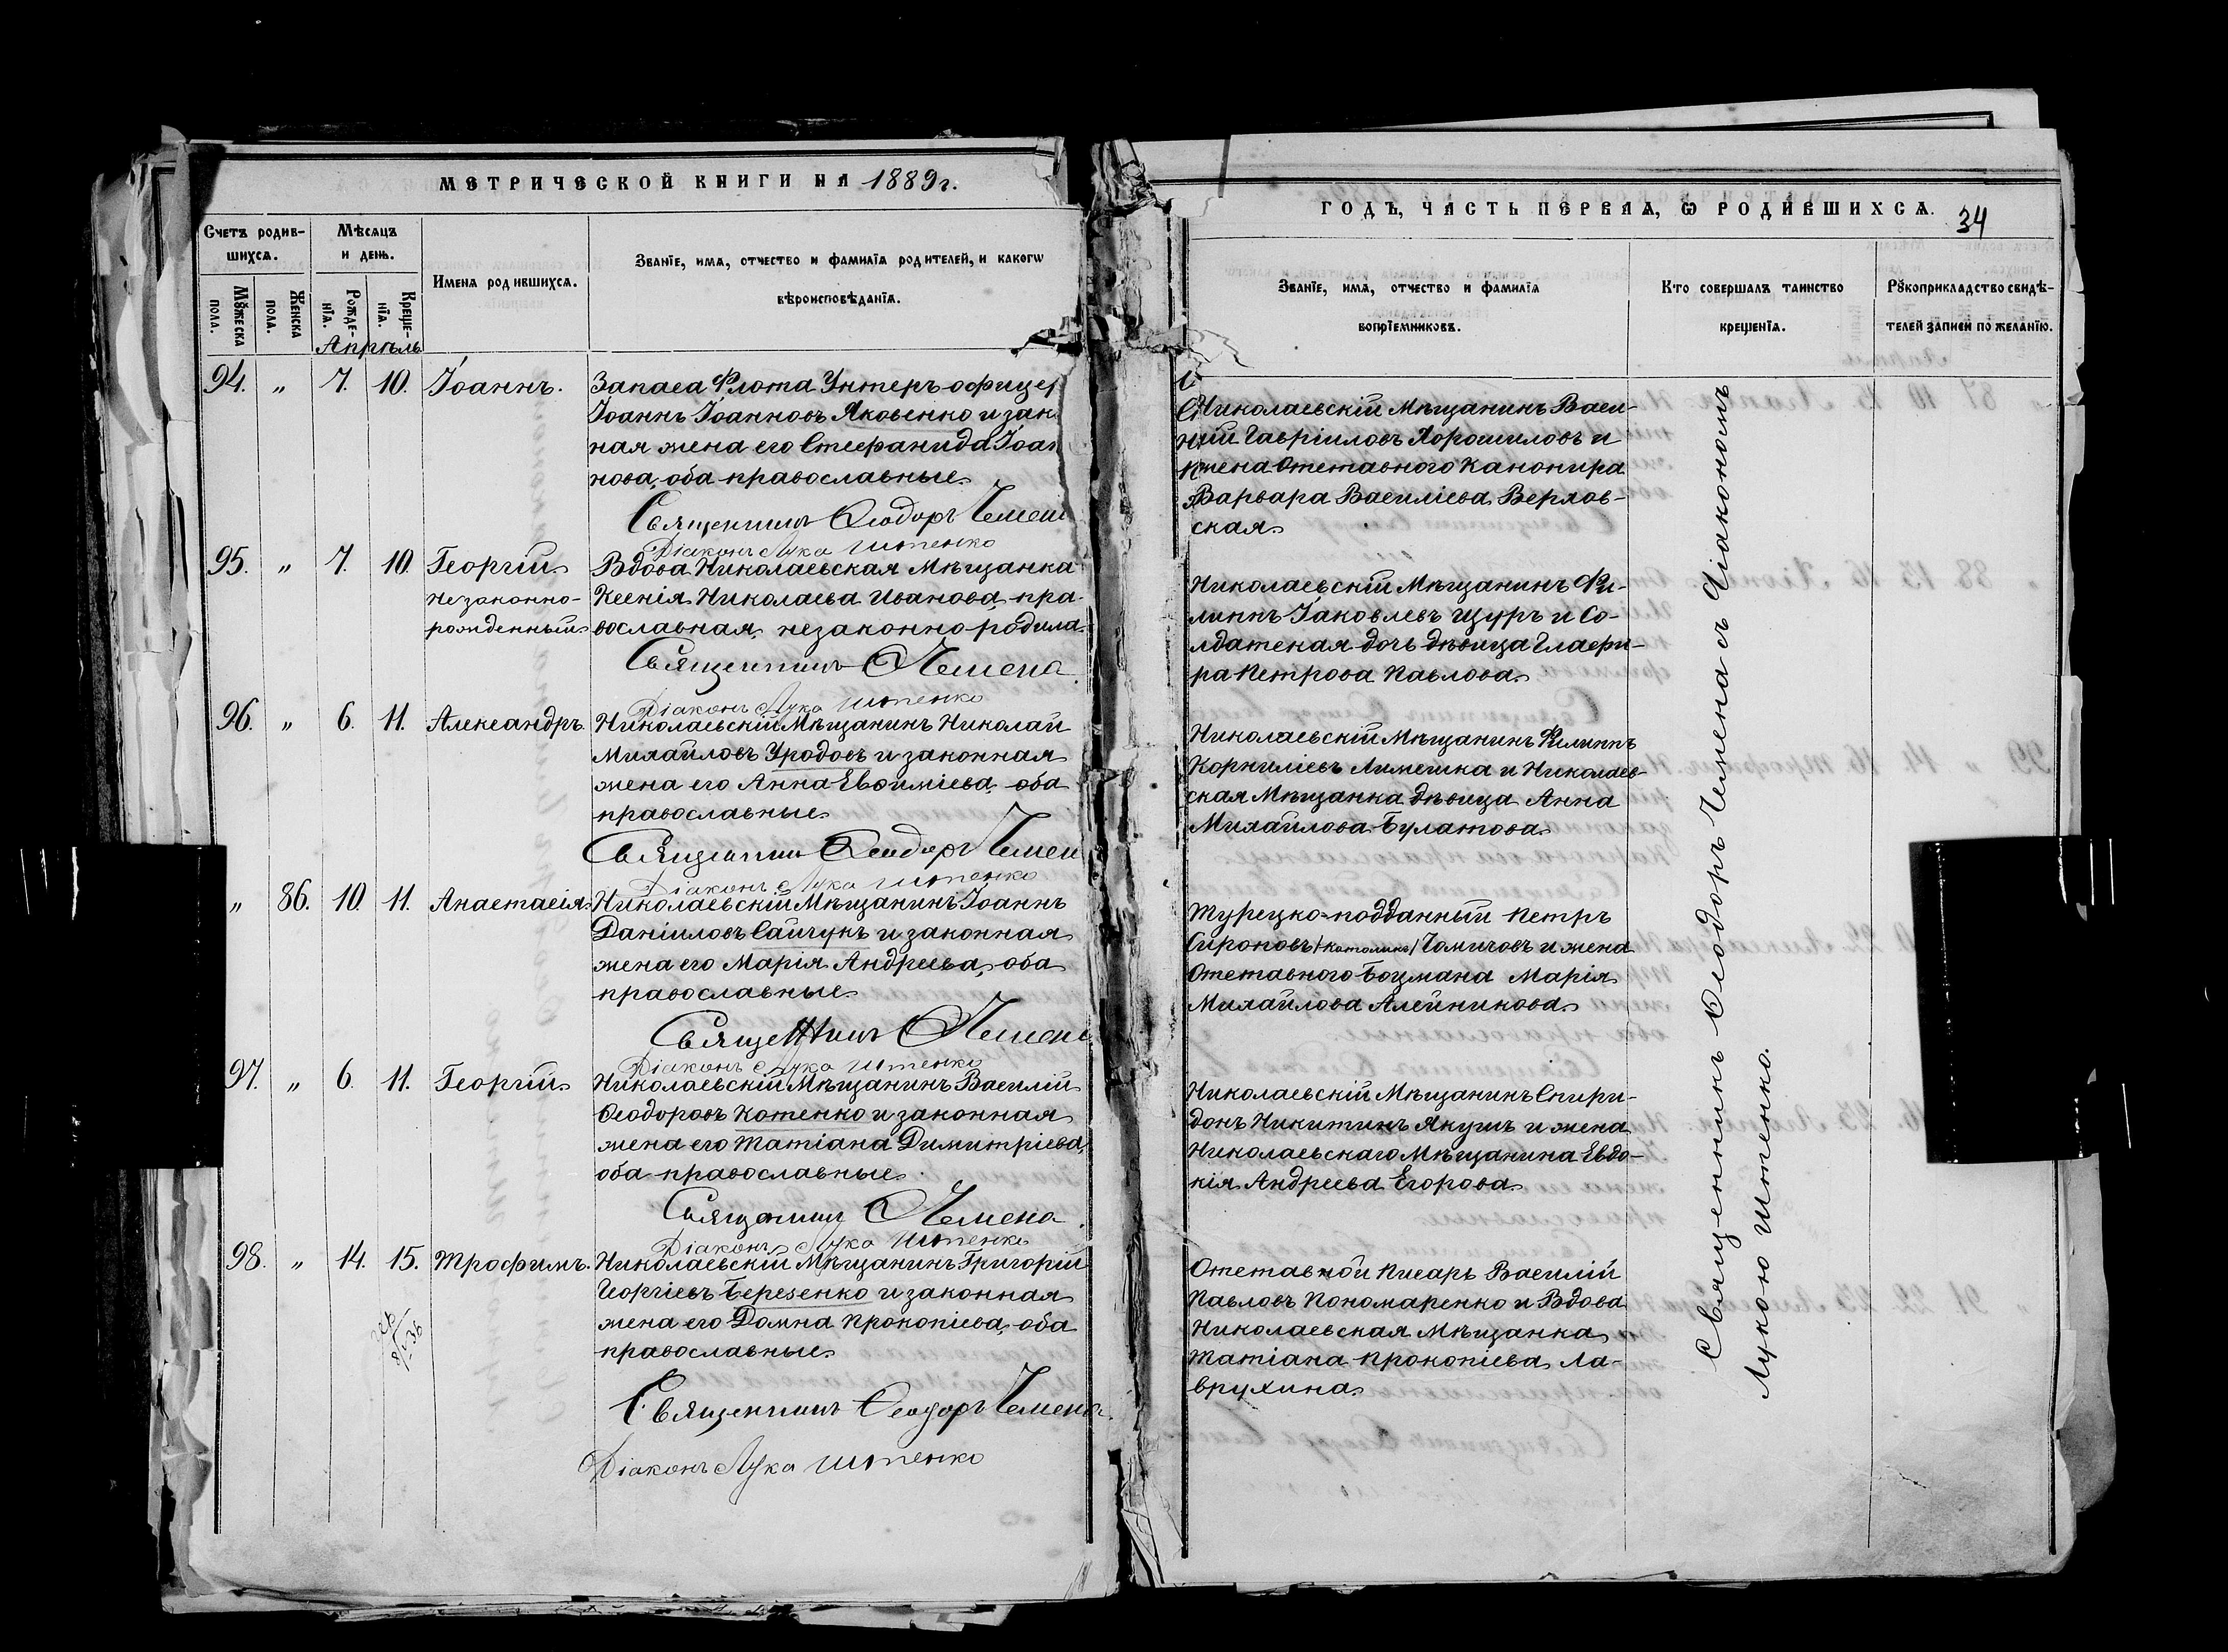 МЕТРИЧЕСКОЙ КНИГИ НА 1889 г.
Счетъ родив-
шихся.
Мѣсяцъ
и день.
Имена родившихся.
Званїе, имя, отчество и фамилїя родителей, и какогѡ
вѣроисповѣданїя.
Мꙋжеска
пола.
Женска
пола.
Рожде-
нїя.
Креще-
нїя.
Апрѣль
94. „ 7. 10. Іоаннъ. Запаса Флота Унтеръ-офицер
Іоаннъ Іоанновъ Яковенко и зак
ная жена его Стефанида Іоан
нова, оба православные
Священникъ Ѳеодоръ Чемена
Діаконъ Лука Иттенко
95. „ 7. 10. Георгій Вдова Николаевская Мѣщанка
незаконно- Ксенія Николаева Иванова, пра-
рожденный вославная, незаконно родила
Священникъ Ѳ Чемена
Діаконъ Лука Иттенко
96. „ 6. 11. Александръ. Николаевскій Мѣщанинъ Николай
Михайловъ Уродовъ и законная
жена его Анна Евѳиміева, оба
православные
Священникъ Ѳеодоръ Чемен
Діаконъ Лука Иттенко
„ 86. 10. 11. Анастасія. Николаевскій Мѣщанинъ Іоаннъ
Даніиловъ Сайчукъ и законная
жена его Марія Андреева, оба
православные
Священникъ Ѳ Чемен
Діаконъ Лука Иттенко
97. „ 6. 11. Георгій Николаевскій Мѣщанинъ Василій
Ѳеодоровъ Котенко и законная
жена его Татіана Димитріева,
оба православные
Священникъ Ѳ Чемена
Діаконъ Лука Иттенко
98. „ 14. 15. Трофимъ. Николаевскій Мѣщанинъ Григорій
Георгіевъ Березенко и законная
жена его Домна Прокопіева, оба
православные
Священникъ Ѳеодоръ Чемена
Діаконъ Лука Иттенко
ГОДЪ, ЧАСТЬ ПЕРВАЯ, Ѡ РОДИВШИХСЯ. 34
Званїе, имя, отчество и фамилїя
воспрїемниковъ.
Кто совершалъ таинство
крещенїя.
Рꙋкоприкладство свидѣ-
телей записи по желанїю.
Николаевскій Мѣщанинъ Васи-
лій Гавріиловъ Хорошиловъ и
жена Отставного Канонира
Варвара Василіева Верхов-
ская
Николаевскій Мѣщанинъ Фи-
липпъ Іаковлевъ Щуръ и Со-
лдатская дочь дѣвица Глафи-
ра Петрова Павлова
Николаевскій Мѣщанинъ Филиппъ
Корниліевъ Химешка и Николаев-
ская Мѣщанка дѣвица Анна
Михайлова Булатова
Турецко-подданный Петръ
Сироповъ /католикъ/ Томичовъ и жена
Отставного Боцмана Марія
Михайлова Алейникова
Николаевскій Мѣщанинъ Спири-
донъ Никитинъ Якушъ и жена
Николаевскаго Мѣщанина Евдо-
кія Андреева Егорова
Отставной Писарь Василій
Павловъ Пономаренко и Вдова
Николаевская Мѣщанка
Татіана Прокопіева Ла-
врухина
Священникъ Ѳеодоръ Чемена съ Діакономъ
Лукою Иттенко.